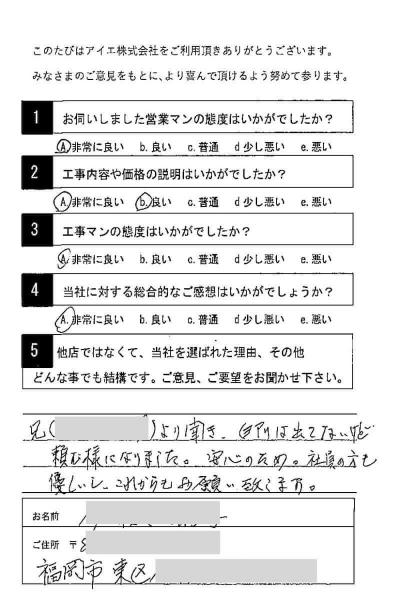 このたびはアイエ株式会社をご利用頂きありがとうございます。
みなさまのご意見をもとに、より喜んで頂けるよう努めて参ります。
1 お伺いしました営業マンの態度はいかがでしたか？
A.非常に良い b.良い c.普通 d少し悪い e.悪い
2 工事内容や価格の説明はいかがでしたか？
A.非常に良い b.良い c.普通 d少し悪い e.悪い
3 工事マンの態度はいかがでしたか？
A.非常に良い b.良い c.普通 d少し悪い e.悪い
4 当社に対する総合的なご感想はいかがでしょうか？
A.非常に良い b.良い c.普通 d少し悪い e.悪い
5 他店ではなくて、当社を選ばれた理由、その他
どんな事でも結構です。ご意見、ご要望をお聞かせ下さい。
兄( )より聞き、 は出てないけど
頼む様になりました。安心のため。社員の方も
優しいし、これからもお願い致します。
お名前
ご住所 〒8
福岡市 東区